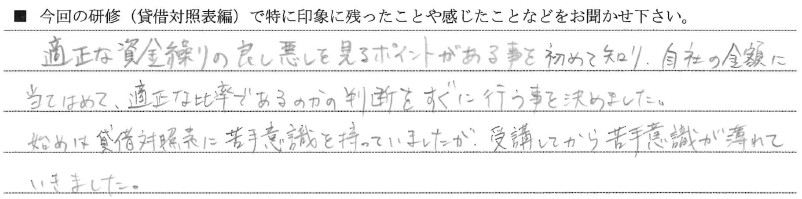 ■ 今回の研修（貸借対照表編）で特に印象に残ったことや感じたことなどをお聞かせ下さい。
適正な資金繰りの良し悪しを見るポイントがある事を初めて知り、自社の金額に
当てはめて、適正な比率であるのかの判断をすぐに行う事を決めました。
始めは貸借対照表に苦手意識を持っていましたが、受講してから苦手意識が薄れて
いきました。